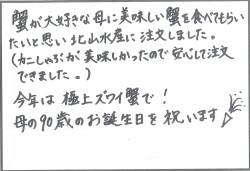 蟹が大好きな母に美味しい蟹を食べてもらい
たいと思い北山水産に注文しました。
(カニしゃぶが美味しかったので安心して注文
できました。)
今年は極上ズワイ蟹で!
母の90歳のお誕生日を祝います